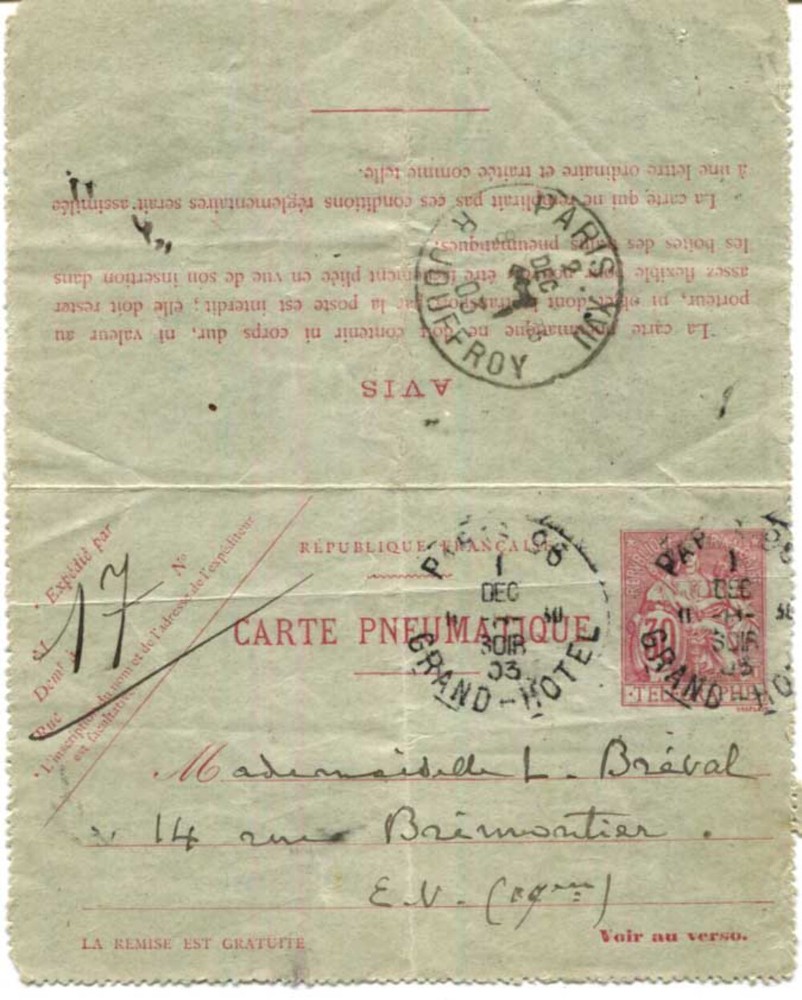 AVIS
La carte pneumatique ne doit contenir ni corps dur, ni valeur au
porteur, ni objet dont le transport par la poste est interdit ; elle doit rester
assez flexible pour pouvoir être facilement pliée en vue de son insertion dans
les boîtes des tubes pneumatiques.
La carte qui ne remplirait pas ces conditions réglementaires serait assimilée
à une lettre ordinaire et traitée comme telle.
PARIS XVII
2
DEC
03
R. JOUFFROY
Expédié par
M
Demt à
Rue
N°
L'inscription du nom et de l'adresse de l'expéditeur
est facultative
17
RÉPUBLIQUE FRANÇAISE
CARTE PNEUMATIQUE
PARIS 96
1
DEC
11 30
SOIR
03
GRAND-HOTEL
30
TELEGRAPHE
PARIS 96
1
DEC
11 30
SOIR
03
GRAND-HOTEL
Mademoiselle L. Bréval
14 rue Brémontier.
E.V. (17eme)
LA REMISE EST GRATUITE
Voir au verso.